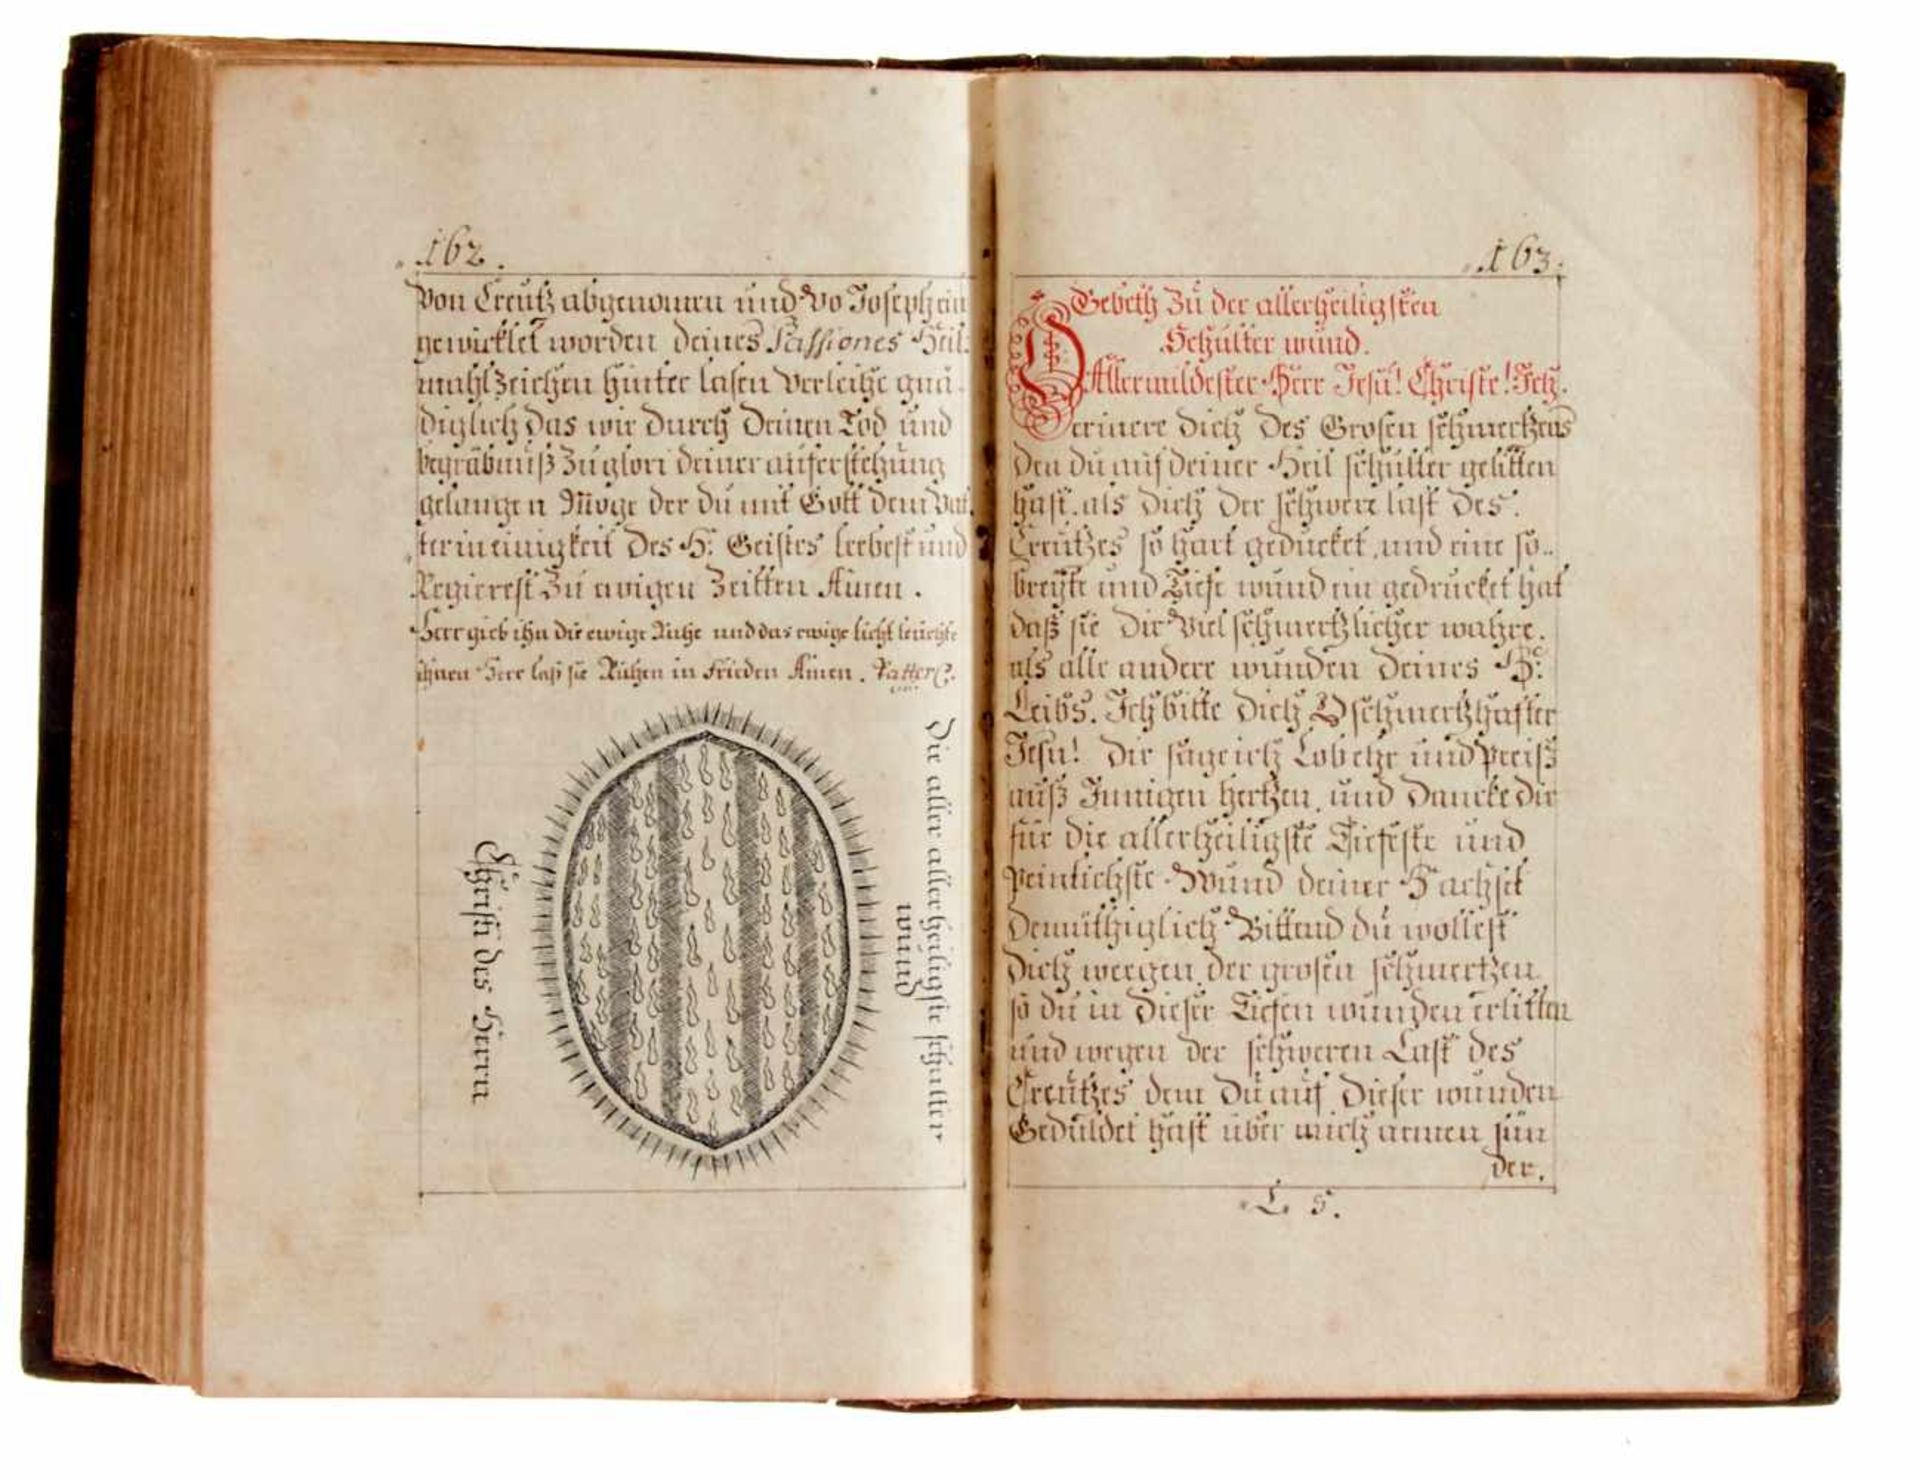 162.
Von Creutz abgenomen und Vo Joseph ein
gewicklet worden deines Passiones Heil:
mahlzeichen hinter lasen Verleihe gnä
diglich das wir durch deinen Tod und
begräbnuß zu glori deiner auferstehung
gelangen Möge der du mit Gott dem Vat
ter in einigkeit des H: Geistes leebest und
Regierest Zu ewigen Zeitten Amen.
Herr gieb ihn die ewige Ruhe und das ewige licht leuchte
ihnen Herr laß sie Ruhen in Frieden Amen. Patter
Die aller allerheiligste schulter
wund
Christi des Herrn
163.
Gebeth Zu der allerheiligsten
Schulter wund.
O Allermildester Herr Jesu! Christe! Ich
erinere dich des Grosen schmertzens
den du auf deiner Heil schulter gelitten
hast. als dich der schwere last des.
Creutzes so hart geducket, und eine so..
breyte und Tiefe wund ein gedrucket hat
daß sie dir Viel schmertzlicher wahre.
als alle andere wunden deines H:
Leibs. Ich bitte dich O schmertzhafter
Jesu! dir sage ich Lob ehr und Preiß
auß Innigen hertzen, und dancke dir
für die allerheiligste Tiefeste und
Peinlichste Wund deiner
demüthiglich Bittend du wollest
dich weegen der grosen schmertzen
so du in dieser Tiefen wunden erlitten
und wegen der schweren Last des
Creutzes dem du auf dieser wunden
Geduldet hast über mich armen sün
der.
L 5.